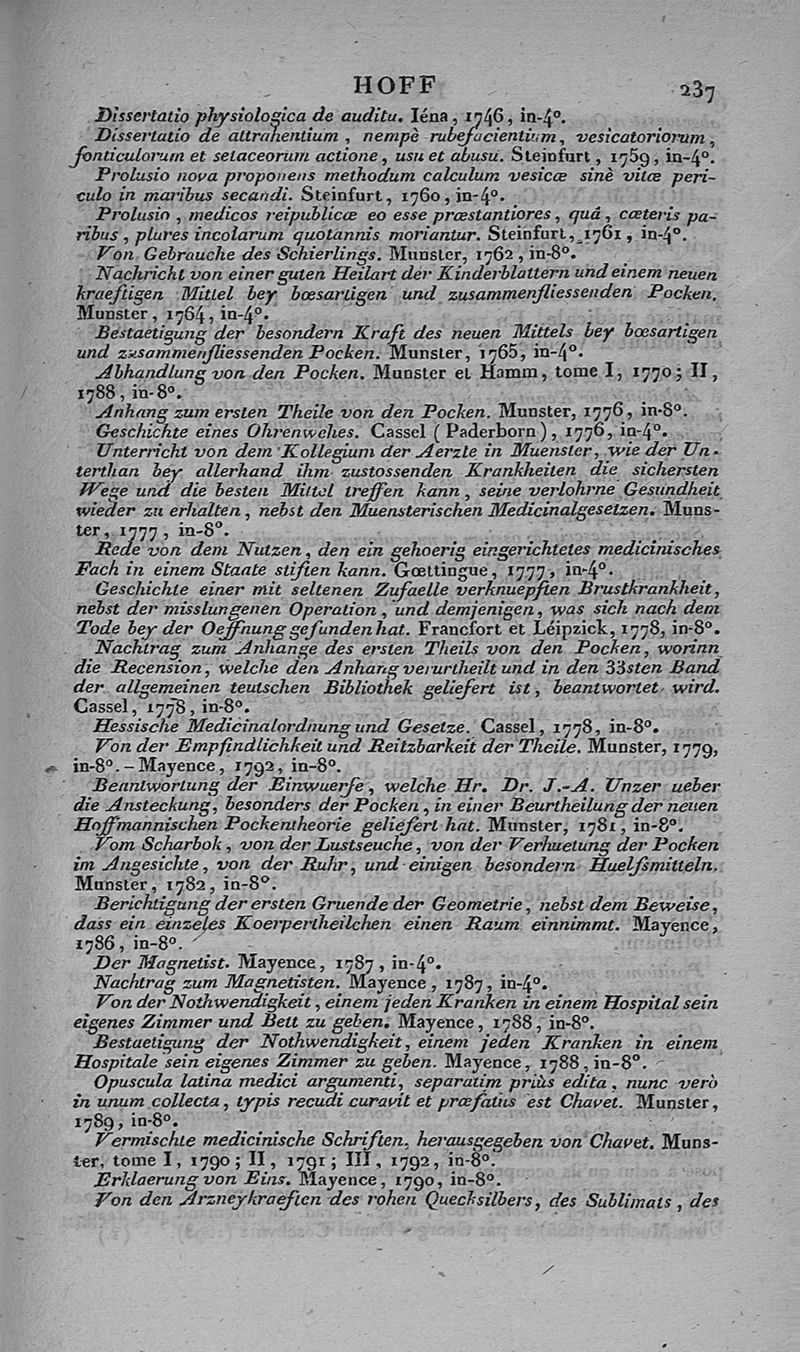 HOFF 237
Dissertatio physiologica de auditu. Iéna, 1746, in-4°.
Dissertatio de attrahentium, nempè rubefacientium, vesicatoriorum,
fonticulorum et setaceorum actione, usu et abusu. Steinfurt, 1759, in-4°.
Prolusio nova proponens methodum calculum vesicæ sinè vitæ peri-
culo in maribus secandi. Steinfurt, 1760, in-4°.
Prolusio, medicos reipublicæ eo esse præstantiores, quâ, cæteris pa-
ribus, plures incolarum quotannis moriantur. Steinfurt, 1761, in-4°.
Von Gebrauche des Schierlings. Munster, 1762, in-8°.
Nachricht von einer guten Heilart der Kinderblattern und einem neuen
kraeftigen Mittel bey bœsartigen und zusammenfliessenden Pocken.
Munster, 1764, in-4°.
Bestaetigung der besondern Kraft des neuen Mittels bey bœsartigen
und zusammenfliessenden Pocken. Munster, 1765, in-4°.
Abhandlung von den Pocken. Munster et Hamm, tome I, 1770; II,
1788, in-8°.
Anhang zum ersten Theile von den Pocken. Munster, 1776, in-8°.
Geschichte eines Ohrenwehes. Cassel (Paderborn), 1776, in-4°.
Unterricht von dem Kollegium der Aerzte in Muenster, wie der Un-
terthan bey allerhand ihm zustossenden Krankheiten die sichersten
Wege und die besten Mittel treffen kann, seine verlohrne Gesundheit
wieder zu erhalten, nebst den Muensterischen Medicinalgesetzen. Muns-
ter, 1777, in-8°.
Rede von dem Nutzen, den ein gehoerig eingerichtetes medicinisches
Fach in einem Staate stiften kann. Gœttingue, 1777, in-4°.
Geschichte einer mit seltenen Zufaelle verknuepften Brustkrankheit,
nebst der misslungenen Operation, und demjenigen, was sich nach dem
Tode bey der Oeffnung gefunden hat. Francfort et Léipzick, 1778, in-8°.
Nachtrag zum Anhange des ersten Theils von den Pocken, worinn
die Recension, welche den Anhang verurtheilt und in den 33sten Band
der allgemeinen teutschen Bibliothek geliefert ist, beantwortet wird.
Cassel, 1778, in-8°.
Hessische Medicinalordnung und Gesetze. Cassel, 1778, in-8°.
Von der Empfindlichkeit und Reitzbarkeit der Theile. Munster, 1779,
in-8°. - Mayence, 1792, in-8°.
Beantwortung der Einwuerfe, welche Hr. Dr. J.-A. Unzer ueber
die Ansteckung, besonders der Pocken, in einer Beurtheilung der neuen
Hoffmannischen Pockentheorie geliefert hat. Munster, 1781, in-8°.
Vom Scharbok, von der Lustseuche, von der Verhuetung der Pocken
im Angesichte, von der Ruhr, und einigen besondern Huelfsmitteln.
Munster, 1782, in-8°.
Berichtigung der ersten Gruende der Geometrie, nebst dem Beweise,
dass ein einzeles Koerpertheilchen einen Raum einnimmt. Mayence,
1786, in-8°.
Der Magnetist. Mayence, 1787, in-4°.
Nachtrag zum Magnetisten. Mayence, 1787, in-4°.
Von der Nothwendigkeit, einem jeden Kranken in einem Hospital sein
eigenes Zimmer und Bett zu geben. Mayence, 1788, in-8°.
Bestaetigung der Nothwendigkeit, einem jeden Kranken in einem
Hospitale sein eigenes Zimmer zu geben. Mayence, 1788, in-8°.
Opuscula latina medici argumenti, separatim priùs edita, nunc verò
in unum collecta, typis recudi curavit et præfatus est Chavet. Munster,
1789, in-8°.
Vermischte medicinische Schriften, herausgegeben von Chavet. Muns-
ter, tome I, 1790; II, 1791; III, 1792, in-8°.
Erklaerung von Eins. Mayence, 1790, in-8°.
Von den Arzneykraeften des rohen Quecksilbers, des Sublimats, des